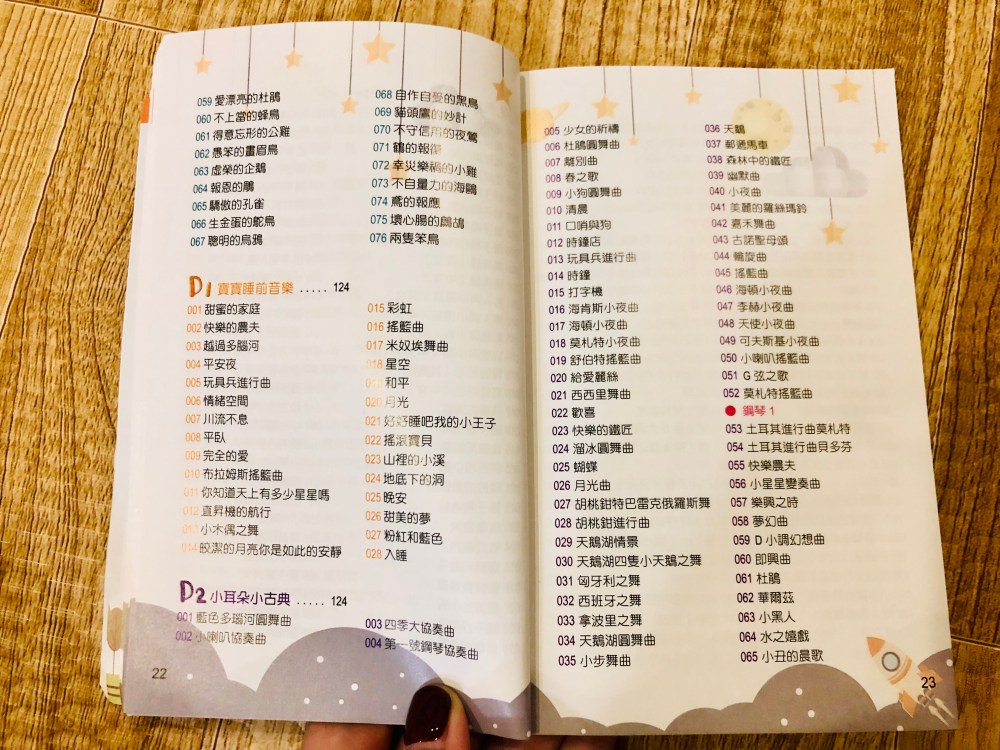 059 愛漂亮的杜鵑
060 不上當的蜂鳥
061 得意忘形的公雞
062 愚笨的畫眉鳥
063 虛榮的企鵝
064 報恩的鵰
065 驕傲的孔雀
066 生金蛋的鴕鳥
067 聰明的烏鴉
068 自作自受的黑鳥
069 貓頭鷹的妙計
070 不守信用的夜鶯
071 鶴的報復
072 幸災樂禍的小雞
073 不自量力的海鷗
074 鳶的報應
075 壞心腸的鷓鴣
076 兩隻笨鳥
D1 寶寶睡前音樂 ..... 124
001 甜蜜的家庭
002 快樂的農夫
003 越過多腦河
004 平安夜
005 玩具兵進行曲
006 情緒空間
007 川流不息
008 平臥
009 完全的愛
010 布拉姆斯搖籃曲
011 你知道天上有多少星星嗎
012 直昇機的航行
013 小木偶之舞
014 皎潔的月亮你是如此的安靜
015 彩虹
016 搖籃曲
017 米奴埃舞曲
018 星空
019 和平
020 月光
021 好好睡吧我的小王子
022 搖滾寶貝
023 山裡的小溪
024 地底下的洞
025 晚安
026 甜美的夢
027 粉紅和藍色
028 入睡
D2 小耳朵小古典 ..... 124
001 藍色多瑙河圓舞曲
002 小喇叭協奏曲
003 四季大協奏曲
004 第一號鋼琴協奏曲
22
005 少女的祈禱
006 杜鵑圓舞曲
007 離別曲
008 春之歌
009 小狗圓舞曲
010 清晨
011 口哨與狗
012 時鐘店
013 玩具兵進行曲
014 時鐘
015 打字機
016 海肯斯小夜曲
017 海頓小夜曲
018 莫札特小夜曲
019 舒伯特搖籃曲
020 給愛麗絲
021 西西里舞曲
022 歡喜
023 快樂的鐵匠
024 溜冰圓舞曲
025 蝴蝶
026 月光曲
027 胡桃鉗特巴雷克俄羅斯舞
028 胡桃鉗進行曲
029 天鵝湖情景
030 天鵝湖四隻小天鵝之舞
031 匈牙利之舞
032 西班牙之舞
033 拿波里之舞
034 天鵝湖圓舞曲
035 小步舞曲
036 天鵝
037 郵遞馬車
038 森林中的鐵匠
039 幽默曲
040 小夜曲
041 美麗的羅絲瑪鈴
042 嘉禾舞曲
043 古諾聖母頌
044 輪旋曲
045 搖籃曲
046 海頓小夜曲
047 李赫小夜曲
048 天使小夜曲
049 可夫斯基小夜曲
050 小喇叭搖籃曲
051 G 弦之歌
052 莫札特搖籃曲
● 鋼琴 1
053 土耳其進行曲莫札特
054 土耳其進行曲貝多芬
055 快樂農夫
056 小星星變奏曲
057 樂興之時
058 夢幻曲
059 D 小調幻想曲
060 即興曲
061 杜鵑
062 華爾茲
063 小黑人
064 水之嬉戲
065 小丑的晨歌
23